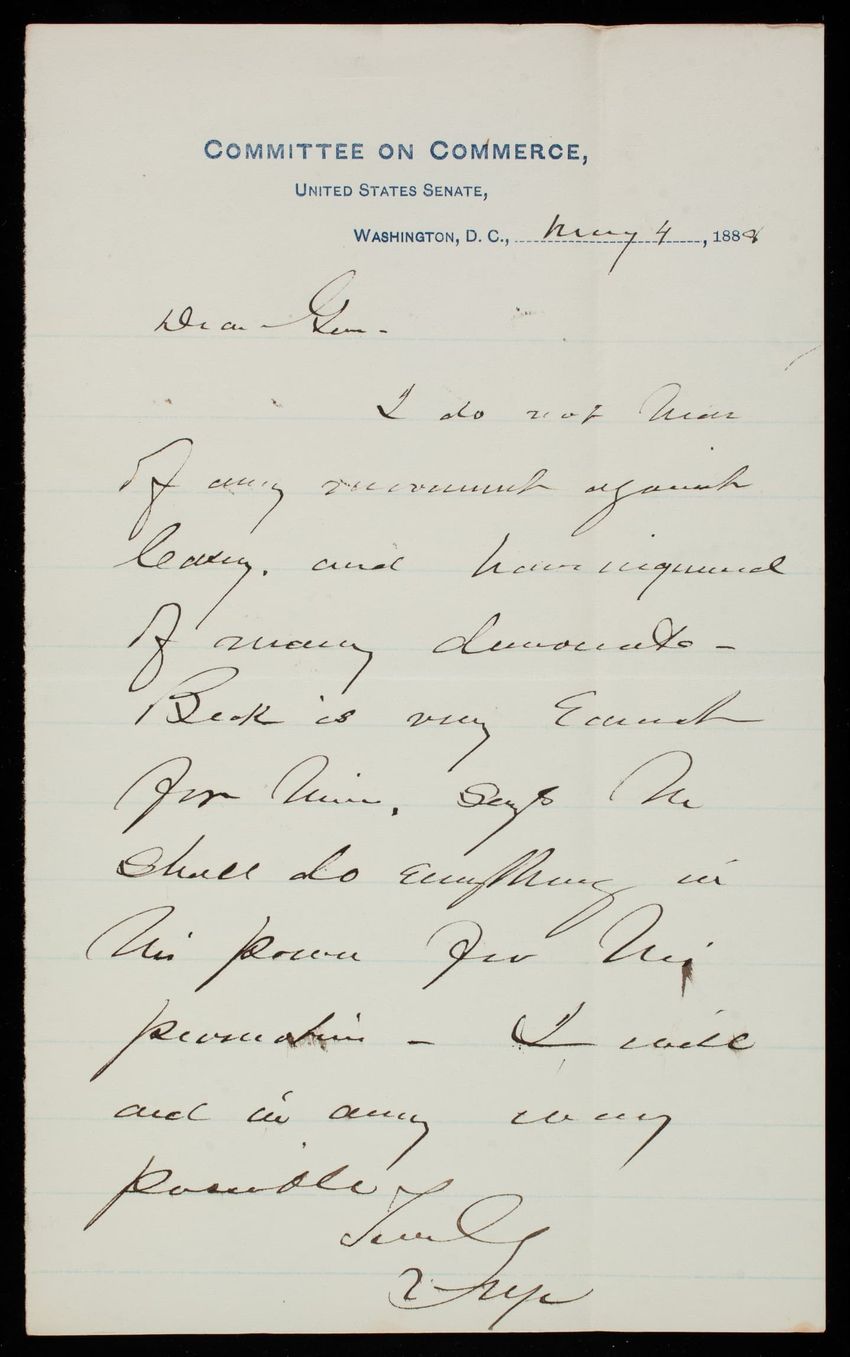 COMMITTEE ON COMMERCE,
UNITED STATES SENATE,
WASHINGTON, D. C., May 4, 1888
Dear Gen -
I do not hear
of any movement against
Casey. and have inquired
of many democrats -
Beck is very Earnest
for him. says he
shall do everything in
his power for his
promotion - I will
aid in any way
possible
Truly
Frye